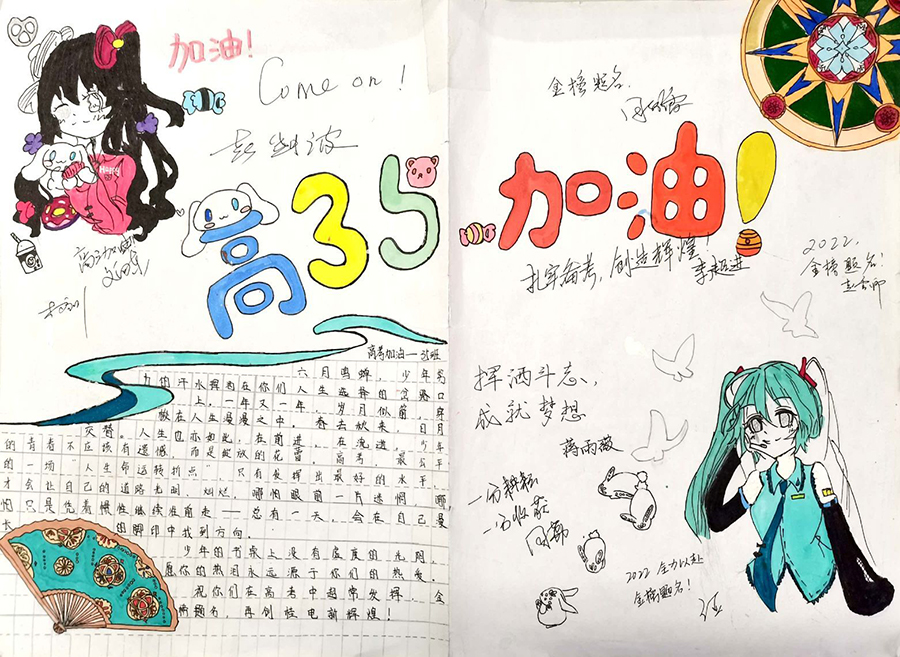 加油!
Come on!
高35
高三加油
高考加油
六月鸣蝉,少年努
力的汗水挥洒在你们人生选择的岔路口
上,一年又一年,岁月似箭,穿
梭在人生漫漫之中,春去秋来,日月
交替。人生也亦如此,在前进,在
的青春不应该有遗憾,而是绽放的花蕾,高考,最公平
的一场“人生命运转折点”,只有发挥出最好的水平,
才会让自己的道路光明,灿烂,哪怕眼前一片迷惘,哪
怕只是凭着惯性继续往前走——总有一天,会在自己漫
长的脚印中找到方向。
少年的书桌上没有虚度的光阴,
愿你的热泪永远源于你们的热爱。
祝你们在高考中超常发挥,金
榜题名,再创
辉煌!
金榜题名.
加油!
扎实备考,创造辉煌!
李超进
2022,
金榜题名!
挥洒斗志、
成就梦想
蒋雨薇
一分耕耘
一分收获
2022 全力以赴
金榜题名!